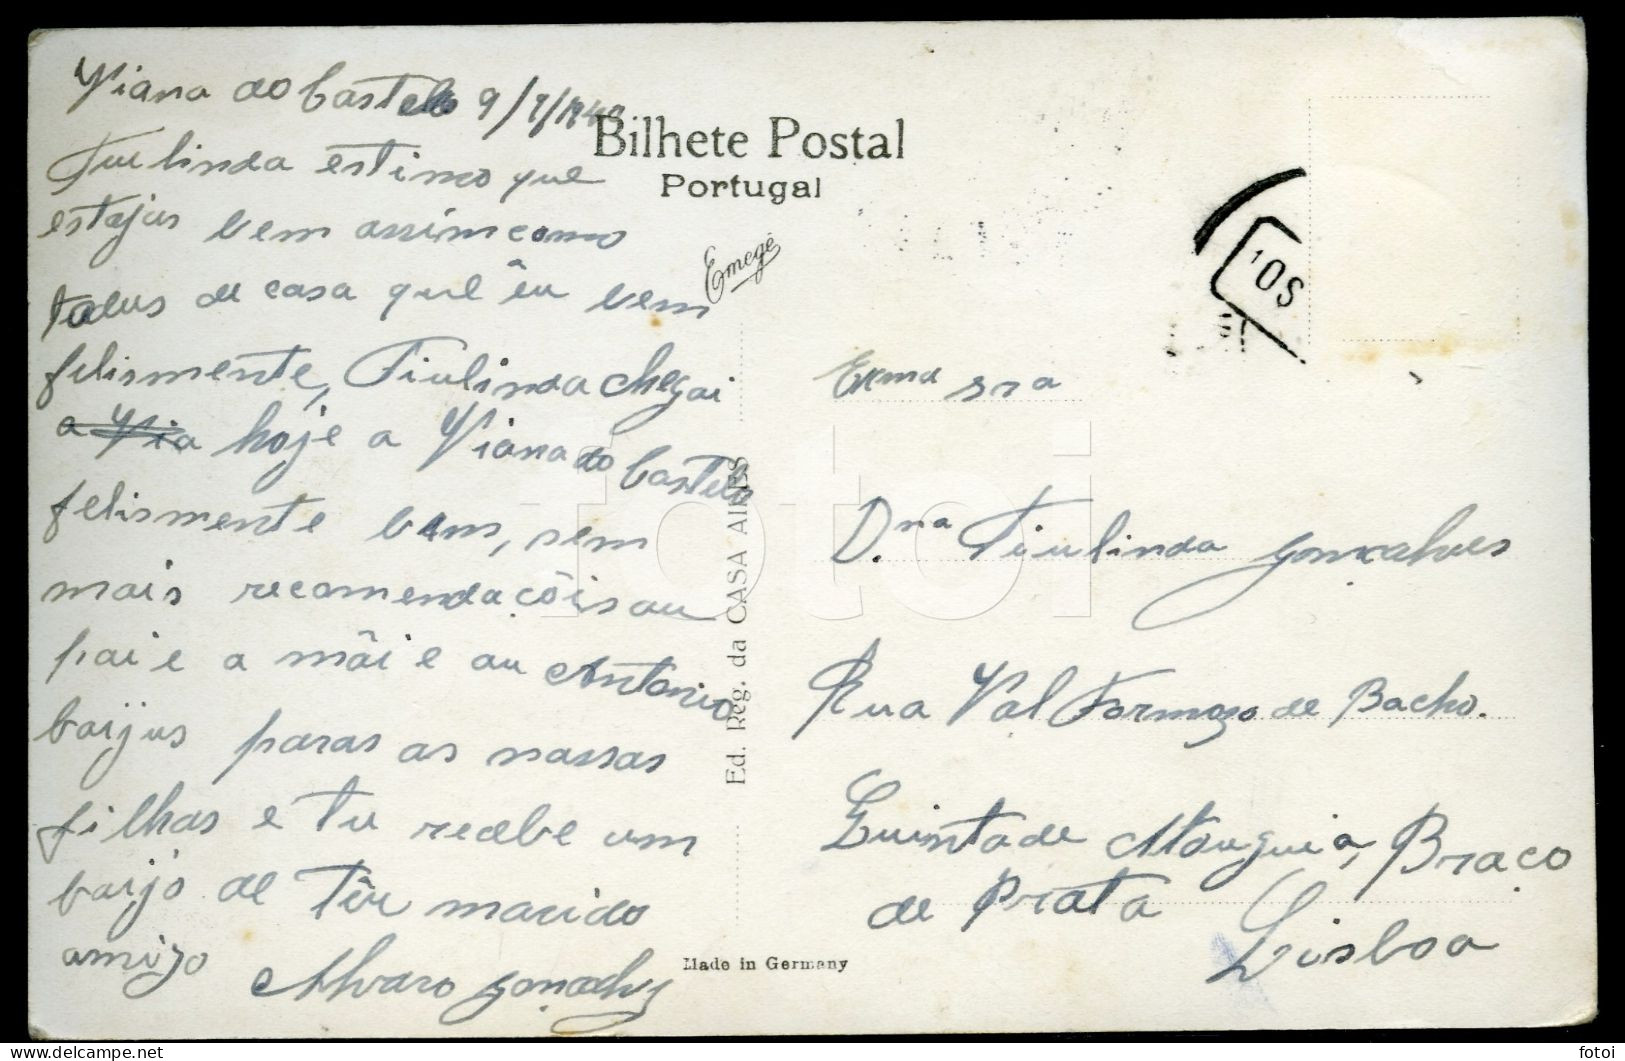 Viana do Castelo 9/9/1940
Tiulinda estimo que
estejas bem assim como
todus de casa que êu bem
felismente, Tiulinda chegai
a Via hoje a Viana do Castelo
felismente bem, sem
mais recomendacõis au
pai e a mãi e au Antonio
baijus paras as nassas
filhas e tu recebe um
baijo de têu marido
amigo Alvaro Gonçalves
Bilhete Postal
Portugal
Emegê
Ed. Reg. da CASA AIRES
Made in Germany
Exma sra
D.na Tiulinda Gonçalves
Rua Val Formozo de Bacho.
Quinta de Mauguia, Braco
de Prata Lisboa
10S
fotoi
delcampe.net
fotoi